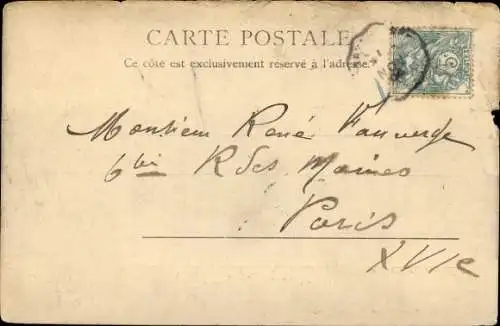 CARTE POSTALE
Ce côté est exclusivement réservé à l'adresse.
Monsieur René Vauverge
6 bis R des Marnes
Paris
XVIe